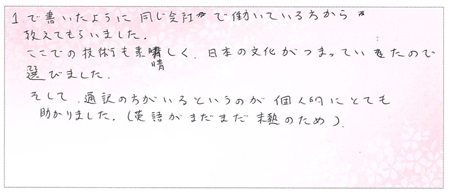 1で書いたように同じ会社で働いている方から
教えてもらいました。
ここでの技術も素晴しく、日本の文化がつまっていたので
選びました。
そして、通訳の方がいるというのが個人的にとても
助かりました。(英語がまだまだ未熟のため)